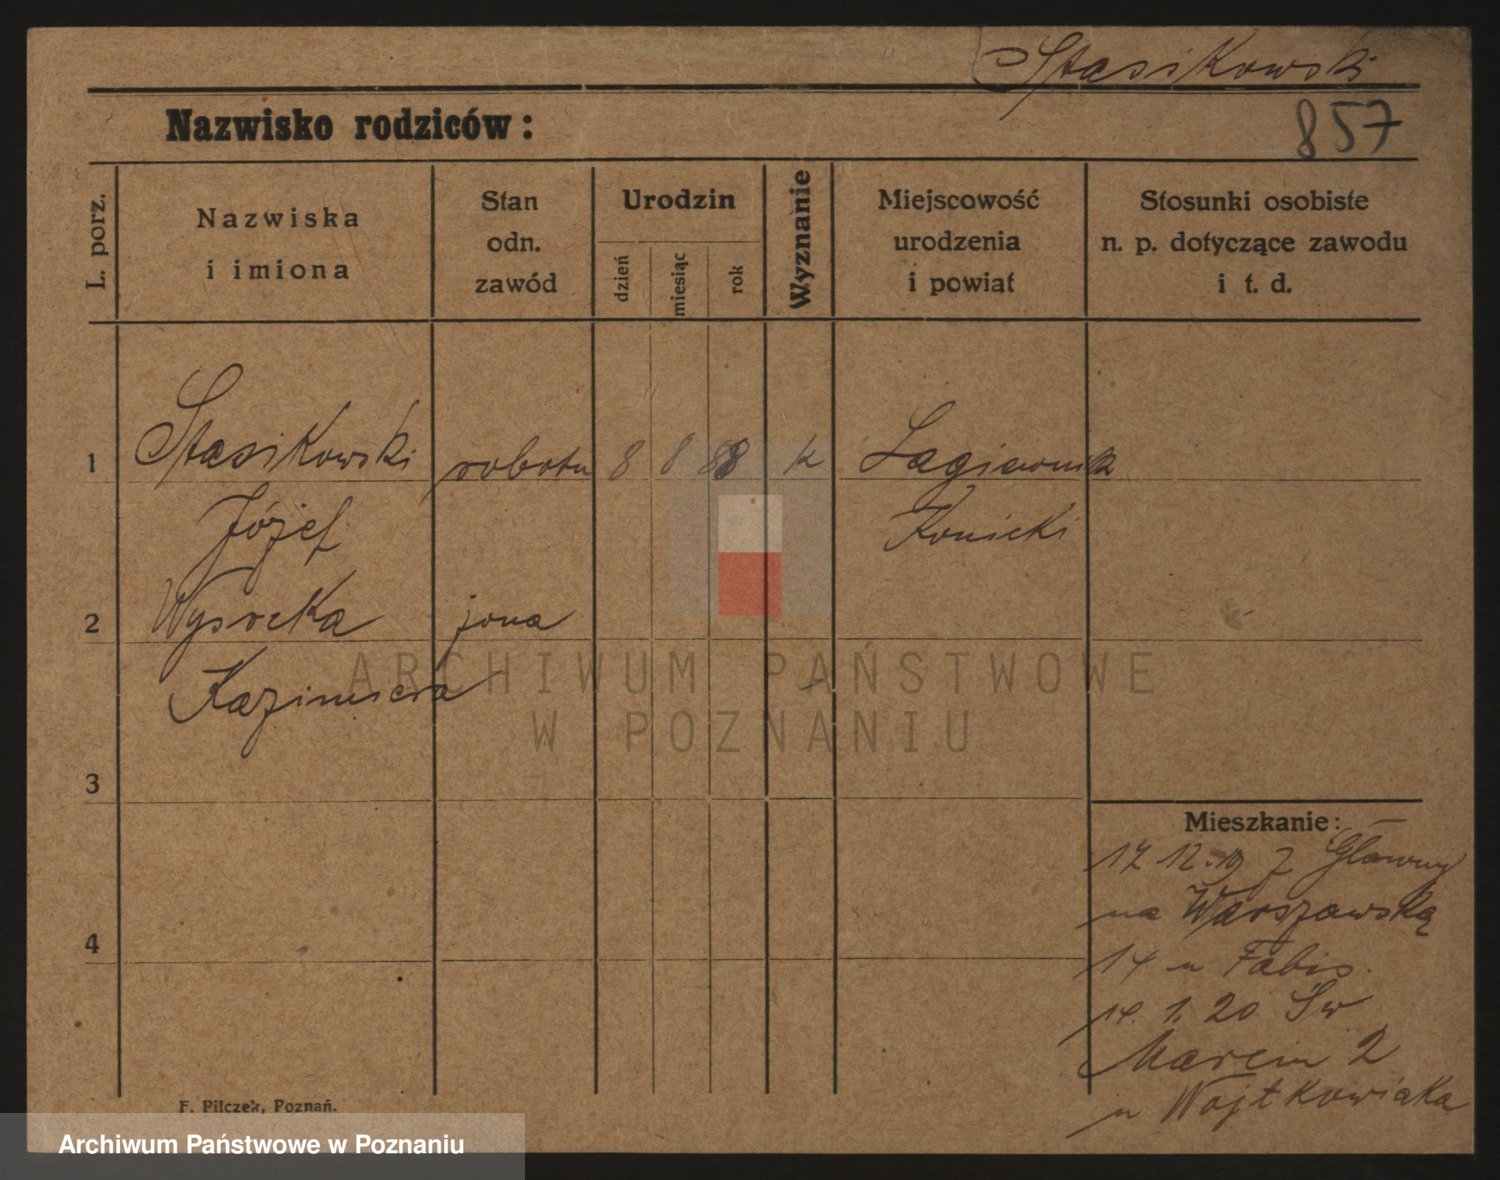 Stasikowski
Nazwisko rodziców:
857
L. porz.
Nazwiska
i imiona
Stan
odn.
zawód
Urodzin
dzień
miesiąc
rok
Wyznanie
Miejscowość
urodzenia
i powiat
Stosunki osobiste
n. p. dotyczące zawodu
i t. d.
1
Stasikowski robotn 8 8 88 k
Józef
2
Wysocka żona
Kazimiera
ARCHIWUM PAŃSTWOWE
W POZNANIU
3
Mieszkanie:
17 12.19 z Główny
na Warszawską
4
14 u Fabis.
1. 20 Św
Marcin 2
u Wojtkowiaka
F. Pilczek, Poznań.
Archiwum Państwowe w Poznaniu